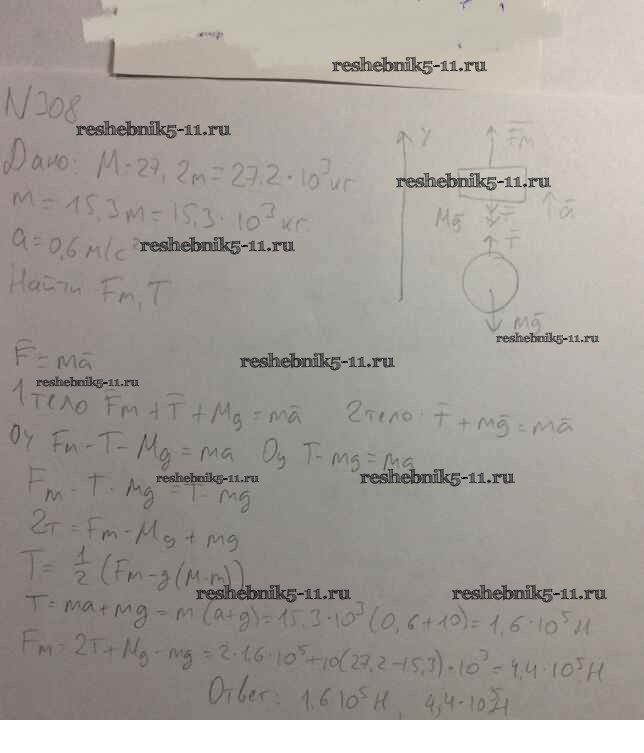 reshebnik5-11.ru
N308
reshebnik5-11.ru
Дано: M = 27,2т = 27.2 · 10³ кг
m = 15,3т = 15,3 · 10³ кг.
a = 0,6 м/с² reshebnik5-11.ru
Найти Fт, T
Y
F̄т
reshebnik5-11.ru
ā
Mḡ
T̄
T̄
mḡ
reshebnik5-11.ru
F̄ = mā
reshebnik5-11.ru
reshebnik5-11.ru
1 тело F̄т + T̄ + Mg = mā 2 тело · T̄ + mḡ = mā
Oy Fт - T - Mg = ma Oy T - mg = ma
reshebnik5-11.ru reshebnik5-11.ru
Fт - T - Mg = T - mg
2T = Fт - Mg + mg
T = 1/2 (Fт - g(M-m))
reshebnik5-11.ru reshebnik5-11.ru
T = ma + mg = m(a+g) = 15,3 · 10³ (0,6+10) = 1,6 · 10⁵ Н
Fт = 2T + Mg - mg = 2 · 1,6 · 10⁵ + 10(27,2 - 15,3) · 10³ = 4,4 · 10⁵ Н
Ответ: 1,6 · 10⁵ Н, 4,4 · 10⁵ Н